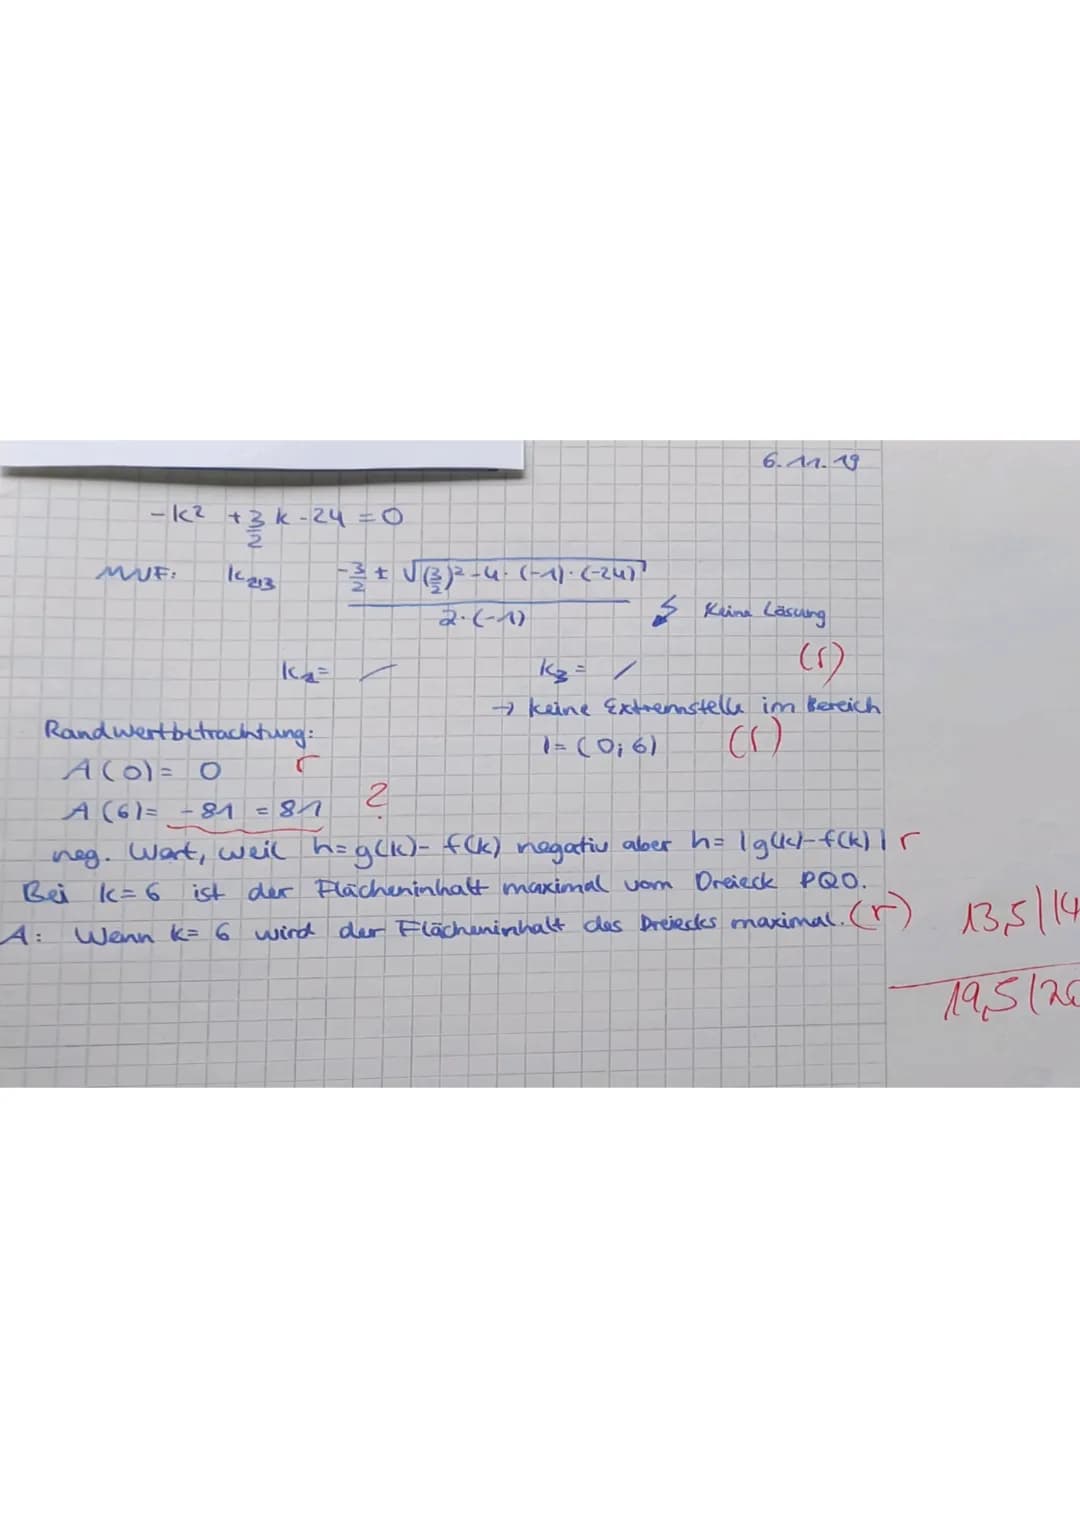 6.11.19
-k² + 3/2 k - 24 = 0
MNF: k2/3 -3/2 ± √((3/2)² - 4 · (-1) · (-24))
2·(-1) ↯ Keine Lösung
k2 = / k3 = / (r)
→ keine Extremstelle im Bereich
Randwertbetrachtung: I = (0; 6) (r)
A(0) = 0 r
A(6) = -81 = 81 ?
neg. Wert, weil h = g(k) - f(k) negativ aber h = |g(k) - f(k)| r
Bei k = 6 ist der Flächeninhalt maximal vom Dreieck PQO.
A: Wenn k = 6 wird der Flächeninhalt des Dreiecks maximal. (r) 13,5/14
19,5/